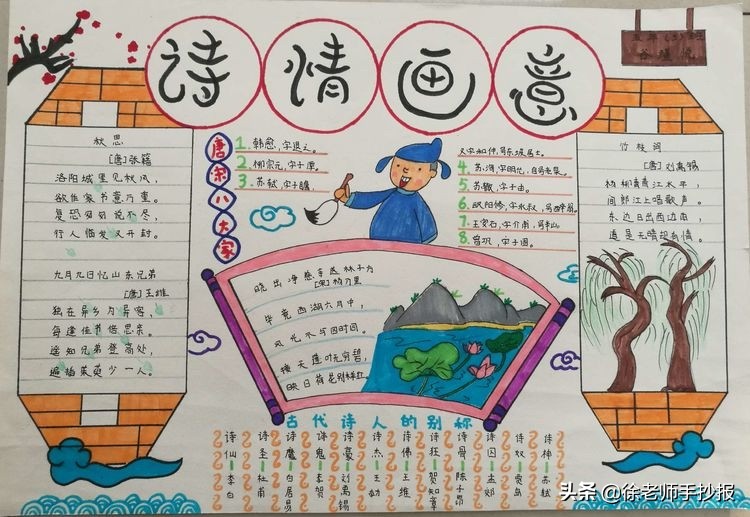 诗情画意
五年(3)班
秋思
[唐]张籍
洛阳城里见秋风，
欲作家书意万重。
复恐匆匆说不尽，
行人临发又开封。
九月九日忆山东兄弟
[唐]王维
独在异乡为异客，
每逢佳节倍思亲。
遥知兄弟登高处，
遍插茱萸少一人。
唐宋八大家
1.韩愈，字退之。
2.柳宗元，字子厚。
3.苏轼，字子瞻，
又字和仲，号东坡居士。
4.苏洵，字明允，自号老泉。
5.苏辙，字子由。
6.欧阳修，字永叔，号醉翁。
7.王安石，字介甫，号半山。
8.曾巩，字子固。
竹枝词
[唐]刘禹锡
杨柳青青江水平，
闻郎江上唱歌声。
东边日出西边雨，
道是无晴却有情。
晓出净慈寺送林子方
[宋]杨万里
毕竟西湖六月中，
风光不与四时同。
接天莲叶无穷碧，
映日荷花别样红。
古代诗人的别称
诗仙—李白
诗圣—杜甫
诗魔—白居易
诗鬼—李贺
诗豪—刘禹锡
诗杰—王勃
诗佛—王维
诗狂—贺知章
诗骨—陈子昂
诗囚—孟郊
诗奴—贾岛
诗神—苏轼
头条@徐老师手抄报